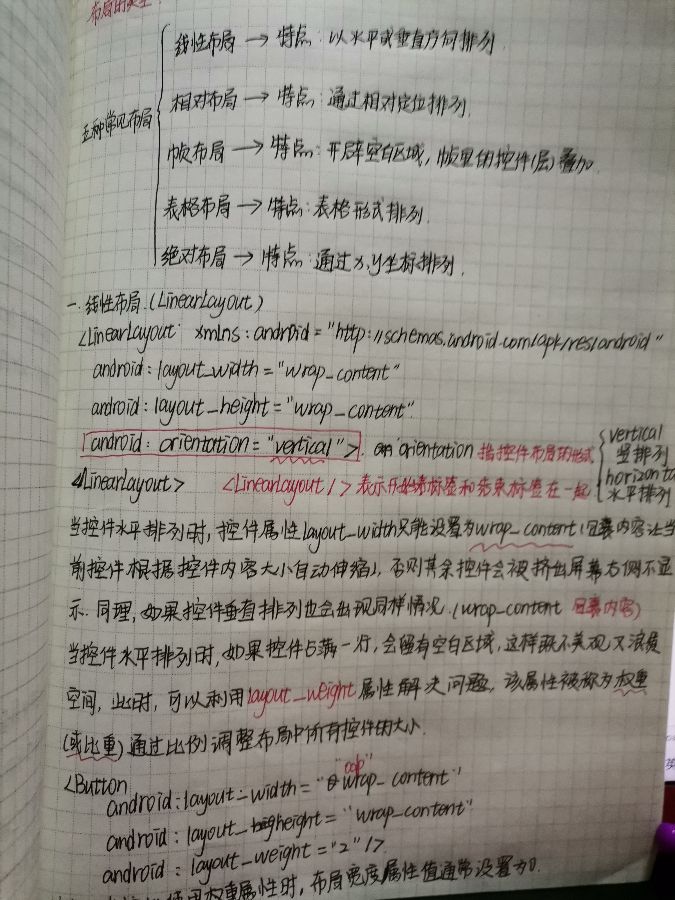 布局的类型:
五种常见布局
线性布局 → 特点: 以水平或垂直方向排列
相对布局 → 特点: 通过相对定位排列.
帧布局 → 特点: 开辟空白区域, 帧里的控件(层)叠加.
表格布局 → 特点: 表格形式排列.
绝对布局 → 特点: 通过x,y坐标排列.
一. 线性布局.(LinearLayout)
<LinearLayout xmlns:android="http://schemas.android.com/apk/res/android"
android:layout_width="wrap_content"
android:layout_height="wrap_content"
android:orientation="vertical">. orientation 指控件布局的形式 vertical 竖排列
<LinearLayout> <LinearLayout/>表示开始标签和结束标签在一起 horizonta 水平排列
当控件水平排列时, 控件属性layout_width只能设置为wrap_content(包裹内容让当
前控件根据控件内容大小自动伸缩), 否则其余控件会被挤出屏幕右侧不显
示. 同理, 如果控件垂直排列也会出现同样情况.(wrap_content 包裹内容)
当控件水平排列时, 如果控件占满一行, 会留有空白区域, 这样既不美观又浪费
空间, 此时, 可以利用layout_weight属性解决问题, 该属性被称为权重
(或比重)通过比例调整布局中所有控件的大小.
<Button
android:layout_width="wrap_content" "odp"
android:layout_height="wrap_content"
android:layout_weight="2"/>
使用权重属性时, 布局宽度属性值通常设置为0.